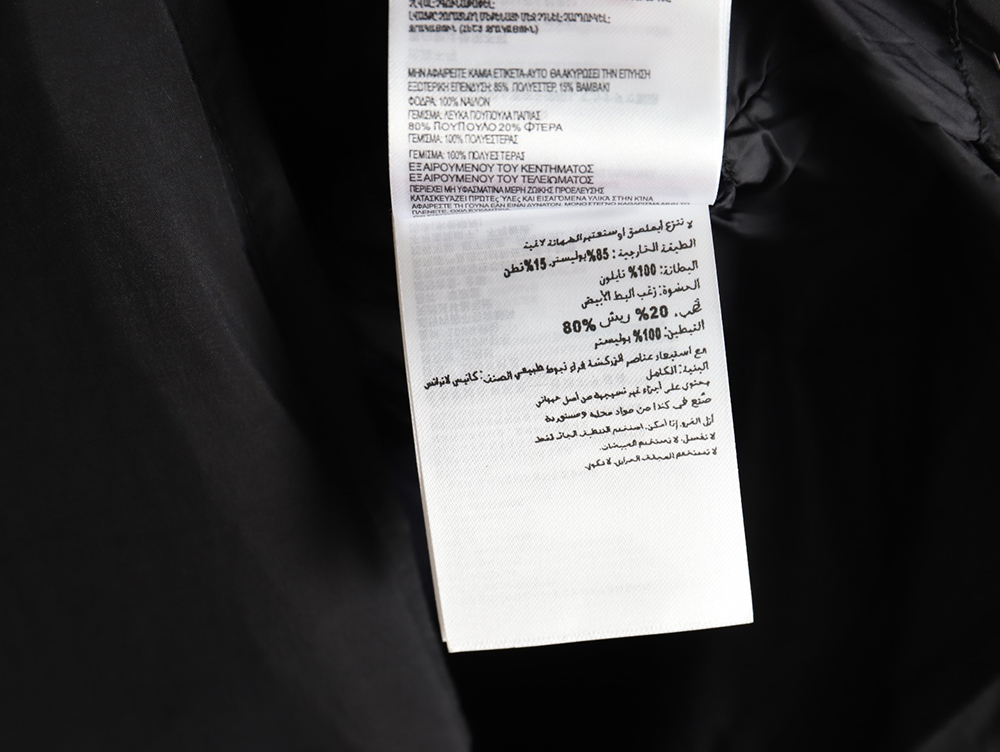 ՉԼՎԱՆԱԼ
ՄԻՆ
ΜΗΝ ΑΦΑΙΡΕΙΤΕ ΚΑΜΙΑ ΕΤΙΚΕΤΑ-ΑΥΤΟ ΘΑ ΑΚΥΡΩΣΕΙ ΤΗΝ ΕΓΓΥΗΣΗ
ΕΞΩΤΕΡΙΚΗ ΕΠΕΝΔΥΣΗ: 85% ΠΟΛΥΕΣΤΕΡ, 15% ΒΑΜΒΑΚΙ
ΦΟΔΡΑ: 100% ΝΑΙΛΟΝ
ΓΕΜΙΣΜΑ: ΛΕΥΚΑ ΠΟΥΠΟΥΛΑ ΠΑΠΙΑΣ
80% ΠΟΥΠΟΥΛΟ 20% ΦΤΕΡΑ
ΓΕΜΙΣΜΑ: 100% ΠΟΛΥΕΣΤΕΡΑΣ
ΓΕΜΙΣΜΑ: 100% ΠΟΛΥΕΣΤΕΡΑΣ
ΕΞΑΙΡΟΥΜΕΝΟΥ ΤΟΥ ΚΕΝΤΗΜΑΤΟΣ
ΕΞΑΙΡΟΥΜΕΝΟΥ ΤΟΥ ΤΕΛΕΙΩΜΑΤΟΣ
ΠΕΡΙΕΧΕΙ ΜΗ ΥΦΑΣΜΑΤΙΝΑ ΜΕΡΗ ΖΩΙΚΗΣ ΠΡΟΕΛΕΥΣΗΣ
ΚΑΤΑΣΚΕΥΑΖΕΙ ΠΡΩΤΕΣ ΎΛΕς ΚΑΙ ΕΙΣΑΓΌΜΕΝΑ ΥΛΙΚΑ ΣΤΗΝ ΚΙΝΑ
ΑΦΑΙΡΕΣΤΕ ΤΗ ΓΟΥΝΑ ΕΑΝ ΕΙΝΑΙ ΔΥΝΑΤΟΝ.
لا تنزع أي ملصق او ستعتبر الضمانة لاغية
الطبقة الخارجية : 85% بوليستر, 15% قطن
البطانة: 100% نايلون
الحشوة: زغب البط الأبيض
زغب. 20% ريش 80%
التبطين: 100% بوليستر
مع استبعاد عناصر الزركشة فراء نيوط طبيعي الصنف: كانيس لاترانس
البنية: الكامل
يحتوي على أجزاء غير نسيجية من أصل حيواني
صنع في كندا من مواد محلية ومستوردة
أزل الفرو إذا أمكن. استخدم التنظيف الجاف فقط
لا تغسل. لا تستخدم المبيضات.
لا تستخدم المجفف الحراري. لا تكوي.